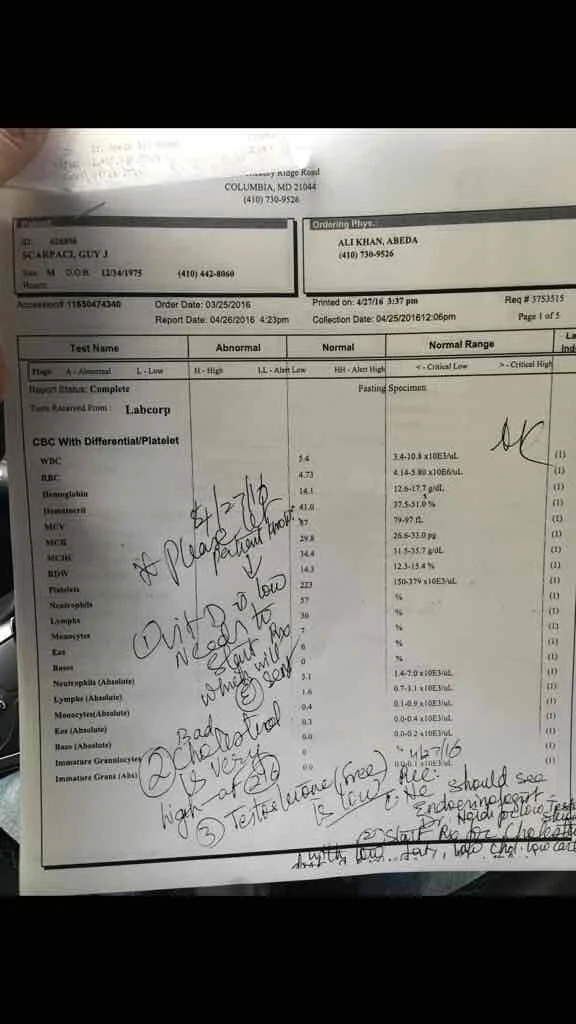 Ridge Road
COLUMBIA, MD 21044
(410) 730-9526
Ordering Phys.:
SCARPACI, GUY J
M D.O.B. 12/34/1975 (410) 442-8060
ALI KHAN, ABEDA
(410) 730-9526
Accession# 11650474340 Order Date: 03/25/2016 Printed on: 4/27/16 3:37 pm Req # 3753515
Report Date: 04/26/2016 4:23pm Collection Date: 04/25/2016 12:06pm Page 1 of 5
Test Name Abnormal Normal Normal Range
Flags A - Abnormal L - Low H - High LL - Alert Low HH - Alert High < - Critical Low > - Critical High
Report Status: Complete Fasting Specimen
Tests Received From: Labcorp
CBC With Differential/Platelet
WBC 5.4 3.4-10.8 x10E3/uL (1)
RBC 4.73 4.14-5.80 x10E6/uL (1)
Hemoglobin 14.1 12.6-17.7 g/dL (1)
Hematocrit 41.0 37.5-51.0 % (1)
MCV 87 79-97 fL (1)
MCH 29.8 26.6-33.0 pg (1)
MCHC 34.4 31.5-35.7 g/dL (1)
RDW 14.3 12.3-15.4 % (1)
Platelets 223 150-379 x10E3/uL (1)
Neutrophils 57 % (1)
Lymphs 30 % (1)
Monocytes 7 % (1)
Eos 6 % (1)
Basos 0 % (1)
Neutrophils (Absolute) 3.1 1.4-7.0 x10E3/uL (1)
Lymphs (Absolute) 1.6 0.7-3.1 x10E3/uL (1)
Monocytes(Absolute) 0.4 0.1-0.9 x10E3/uL (1)
Eos (Absolute) 0.3 0.0-0.4 x10E3/uL (1)
Baso (Absolute) 0.0 0.0-0.2 x10E3/uL (1)
Immature Granulocytes 0 % (1)
Immature Grans (Abs) 0.0 0.0-0.1 x10E3/uL (1)
4/27/16
Please let
patient know
① Vit D is low
Needs to
start Rx
which will
sent
② Bad
cholesterol
is very
high at 216
③ Testosterone (free)
is low
4/27/16
Rec:
He should see
Endocrinologist
Dr.
② Start Rx for Cholesterol
with low fat, low chol. low carb